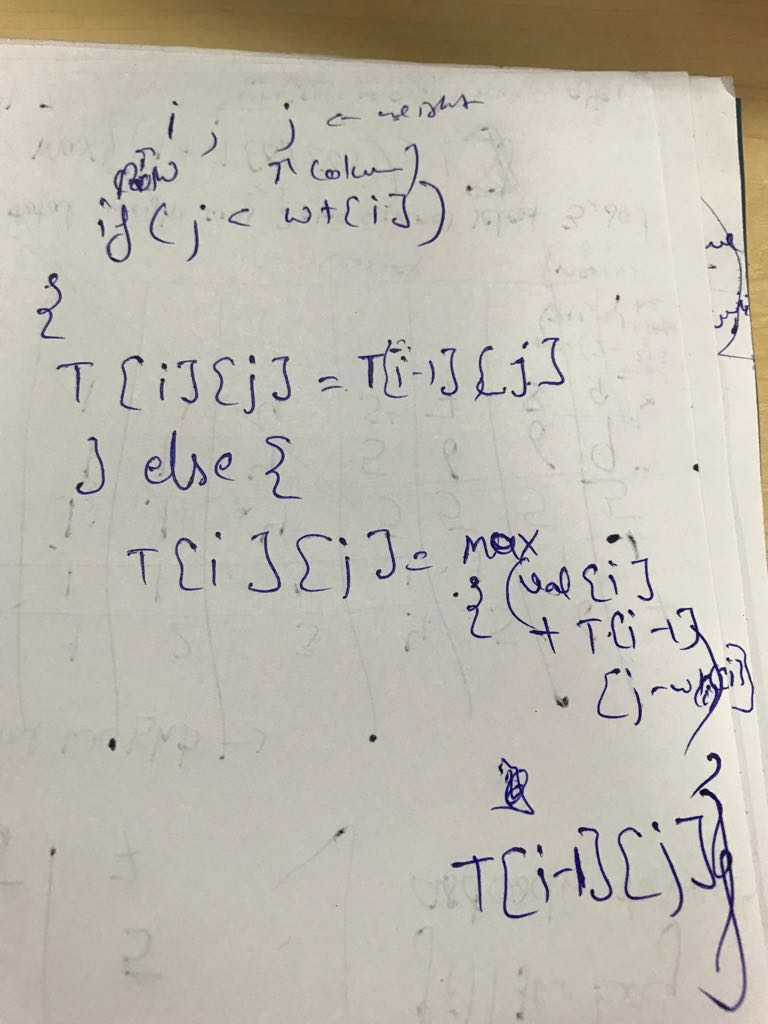 i , j ← weight
row ↑ column
if ( j < wt[i])
{
T[i][j] = T[i-1][j]
} else {
T[i][j] = max
{ (val[i]
+ T[i-1]
[j-wt[i]]) ,
T[i-1][j] }